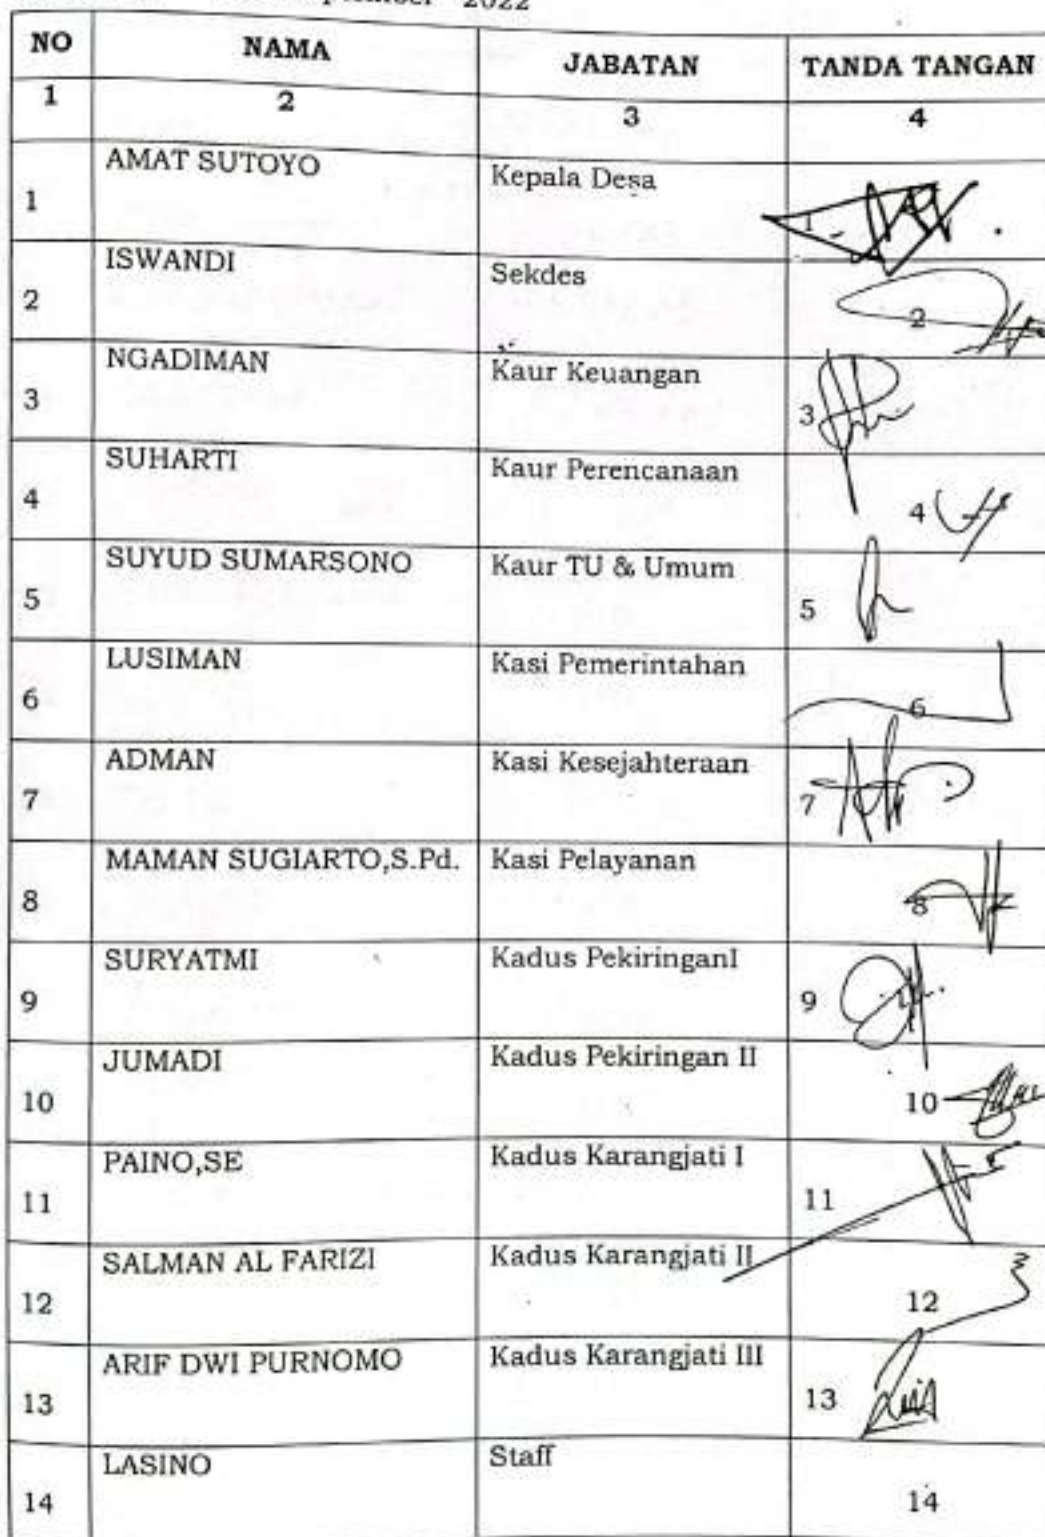 2022
NO NAMA JABATAN TANDA TANGAN
1 2 3 4
1 AMAT SUTOYO Kepala Desa 1
2 ISWANDI Sekdes 2
3 NGADIMAN Kaur Keuangan 3
4 SUHARTI Kaur Perencanaan 4
5 SUYUD SUMARSONO Kaur TU & Umum 5
6 LUSIMAN Kasi Pemerintahan 6
7 ADMAN Kasi Kesejahteraan 7
8 MAMAN SUGIARTO,S.Pd. Kasi Pelayanan 8
9 SURYATMI Kadus PekiringanI 9
10 JUMADI Kadus Pekiringan II 10
11 PAINO,SE Kadus Karangjati I 11
12 SALMAN AL FARIZI Kadus Karangjati II 12
13 ARIF DWI PURNOMO Kadus Karangjati III 13
14 LASINO Staff 14